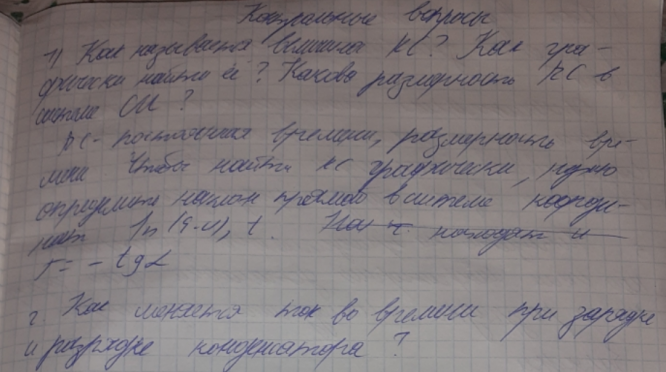 Контрольные вопросы
1) Как называется величина RC? Как гра-
фически найти её? Какова размерность RC в
системе СИ?
RC - постоянная времени, размерность вре-
мени. Чтобы найти RC графически, нужно
определить наклон прямой в системе коорди-
нат ln (q-u), t. Как находят и
τ = - tg α
2 Как меняется ток во времени при зарядке
и разрядке конденсатора?